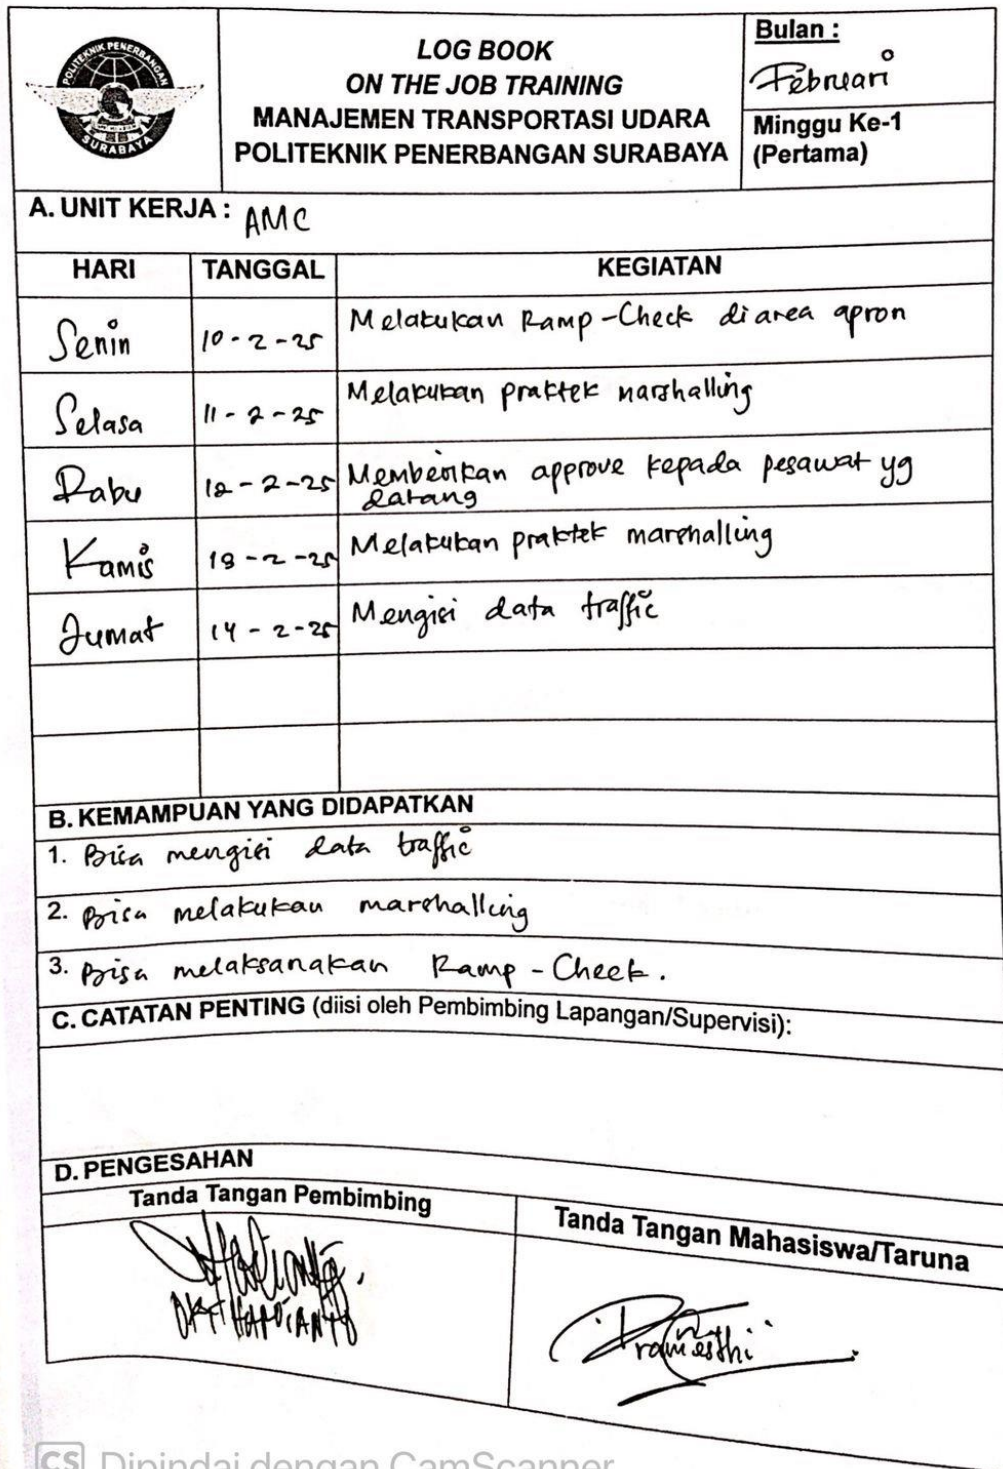 POLITEKNIK PENERBANGAN
SURABAYA
LOG BOOK
ON THE JOB TRAINING
MANAJEMEN TRANSPORTASI UDARA
POLITEKNIK PENERBANGAN SURABAYA
Bulan :
Februari
Minggu Ke-1
(Pertama)
A. UNIT KERJA : AMC
HARI TANGGAL KEGIATAN
Senin 10-2-25 Melakukan Ramp-Check di area apron
Selasa 11-2-25 Melakukan praktek marshalling
Rabu 12-2-25 Memberikan approve kepada pesawat yg
datang
Kamis 13-2-25 Melakukan praktek marshalling
Jumat 14-2-25 Mengisi data traffic
B. KEMAMPUAN YANG DIDAPATKAN
1. Bisa mengisi data traffic
2. Bisa melakukan marshalling
3. Bisa melaksanakan Ramp-Check.
C. CATATAN PENTING (diisi oleh Pembimbing Lapangan/Supervisi):
D. PENGESAHAN
Tanda Tangan Pembimbing
Tanda Tangan Mahasiswa/Taruna
Pramesthi
CS Dipindai dengan CamScanner